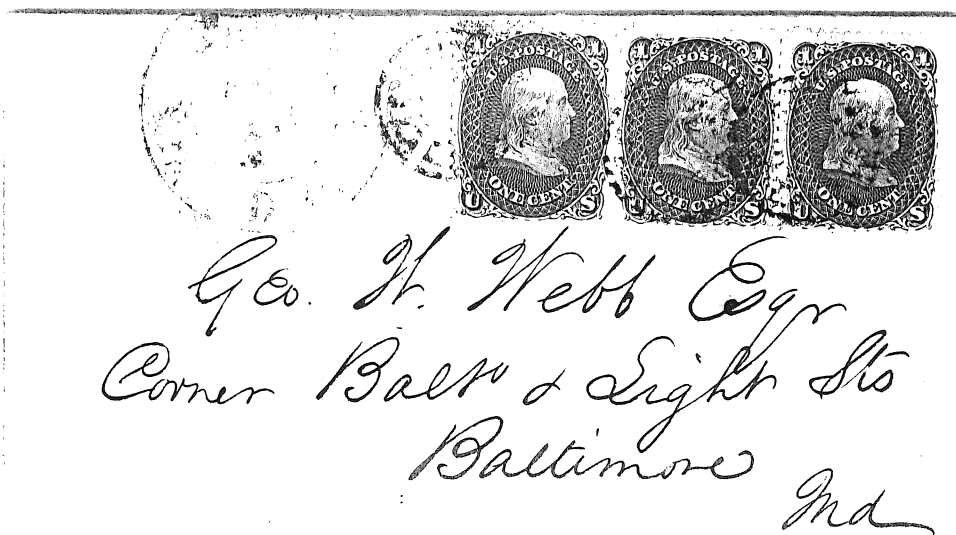 1 U.S. POSTAGE 1 ONE CENT U S
1 U.S. POSTAGE 1 ONE CENT U S
1 U.S. POSTAGE 1 ONE CENT U S
Geo. W. Webb Esqr
Corner Balto & Light Sts
Baltimore
Md